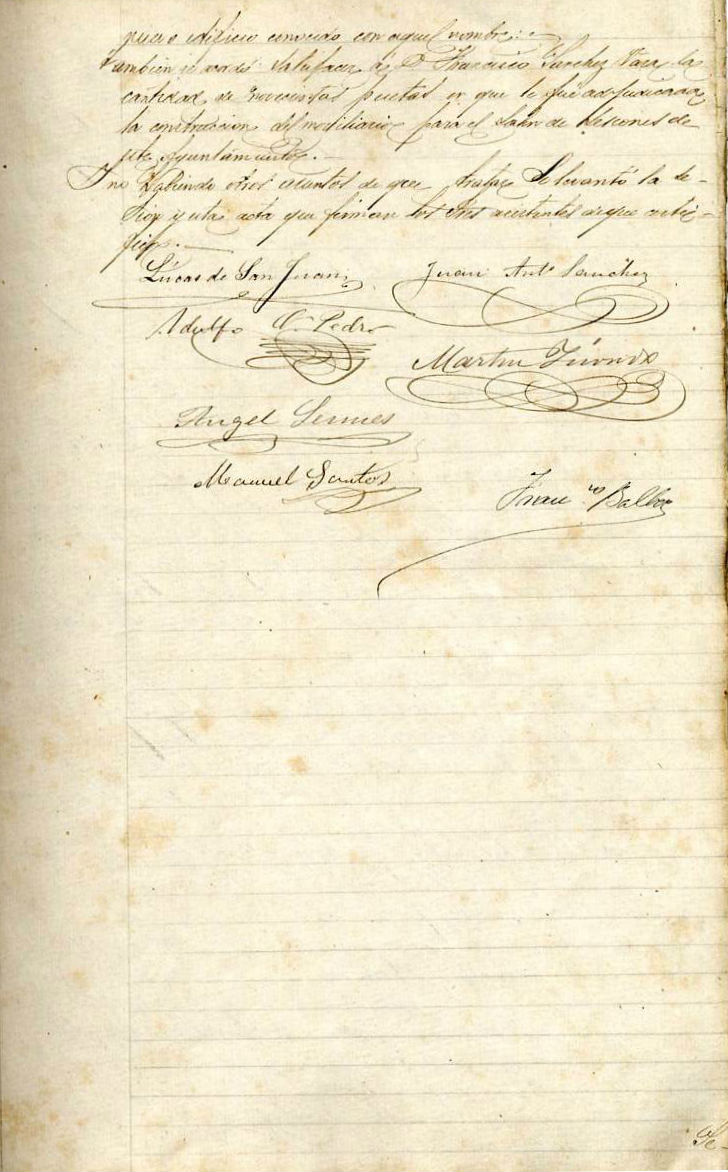 edificio conocido con aquel nombre.
Tambien se acordó satisfacer á D. Francisco Sanchez Vara la
cantidad de novecientas pesetas en que le fué adjudicada
la construccion del moviliario para el Salon de Sesiones de
este Ayuntamiento.
Y no habiendo otros asuntos de que tratar se levantó la se-
sion y esta acta que firman los Sres asistentes de que certi-
fico.
Lúcas de San Juan
Juan Antº Sanchez
Adulfo C. Pedro
Martin
Angel
Manuel Santos
Franco Balboa
Se-